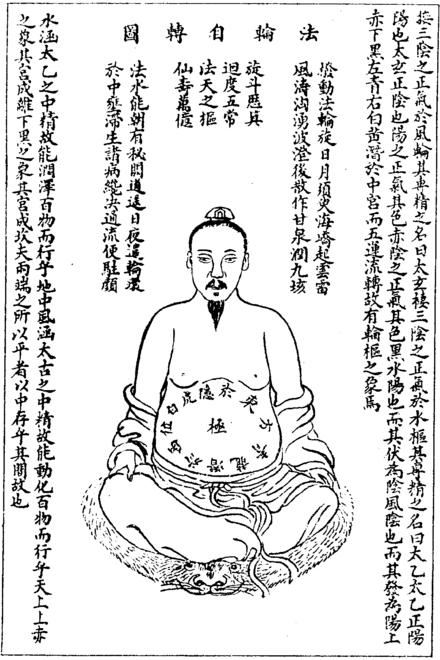 法輪自轉圖
接三陰之正氣於風輪其專精之名曰太玄積三陰之正氣於水樞其專精之名曰太乙太乙正陽
陽也太玄正陰也陽之正氣其色赤陰之正氣其色黑水陽也而其伏為陰風陰也而其發為陽上
赤下黑左青右白黃潛於中宮而五運流轉故有輪樞之象焉
發動法輪旋日月須臾海嶠起雲雷
風濤洶湧波澄後散作甘泉潤九垓
旋斗歷箕
迴度五常
法天之樞
仙壽萬億
法水能朝有秘關逍遙日夜遣輪環
於中壅滯生諸病纔決通流便駐顏
白虎隱於東方
龍潛於酉位
極
水涵太乙之中精故能潤澤百物而行乎地中風涵太古之中精故能動化百物而行乎天上上赤
之象其宮成離下黑之象其宮成坎夫兩端之所以平者以中存乎其間故也